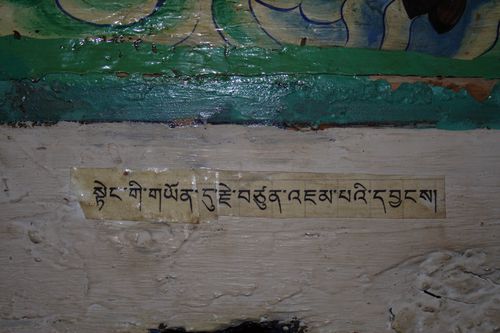 སྟེང་གི་གཡོན་དུ་རྗེ་བཙུན་འཇམ་པའི་དབྱངས།